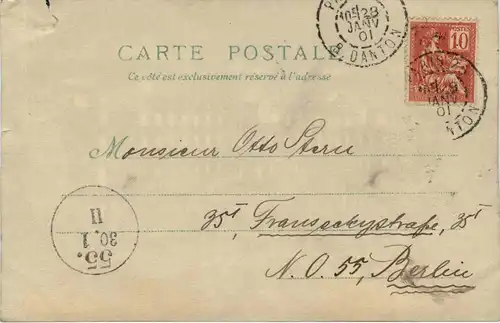 P
10E 28
JANV
01
R. DANTON
10
28
JANV
01
NTON
CARTE POSTALE
Ce côté est exclusivement réservé à l'adresse
Monsieur Otto Stern
35I, Franseckystraße, 35I
N.O. 55, Berlin
55.
30. 1
II